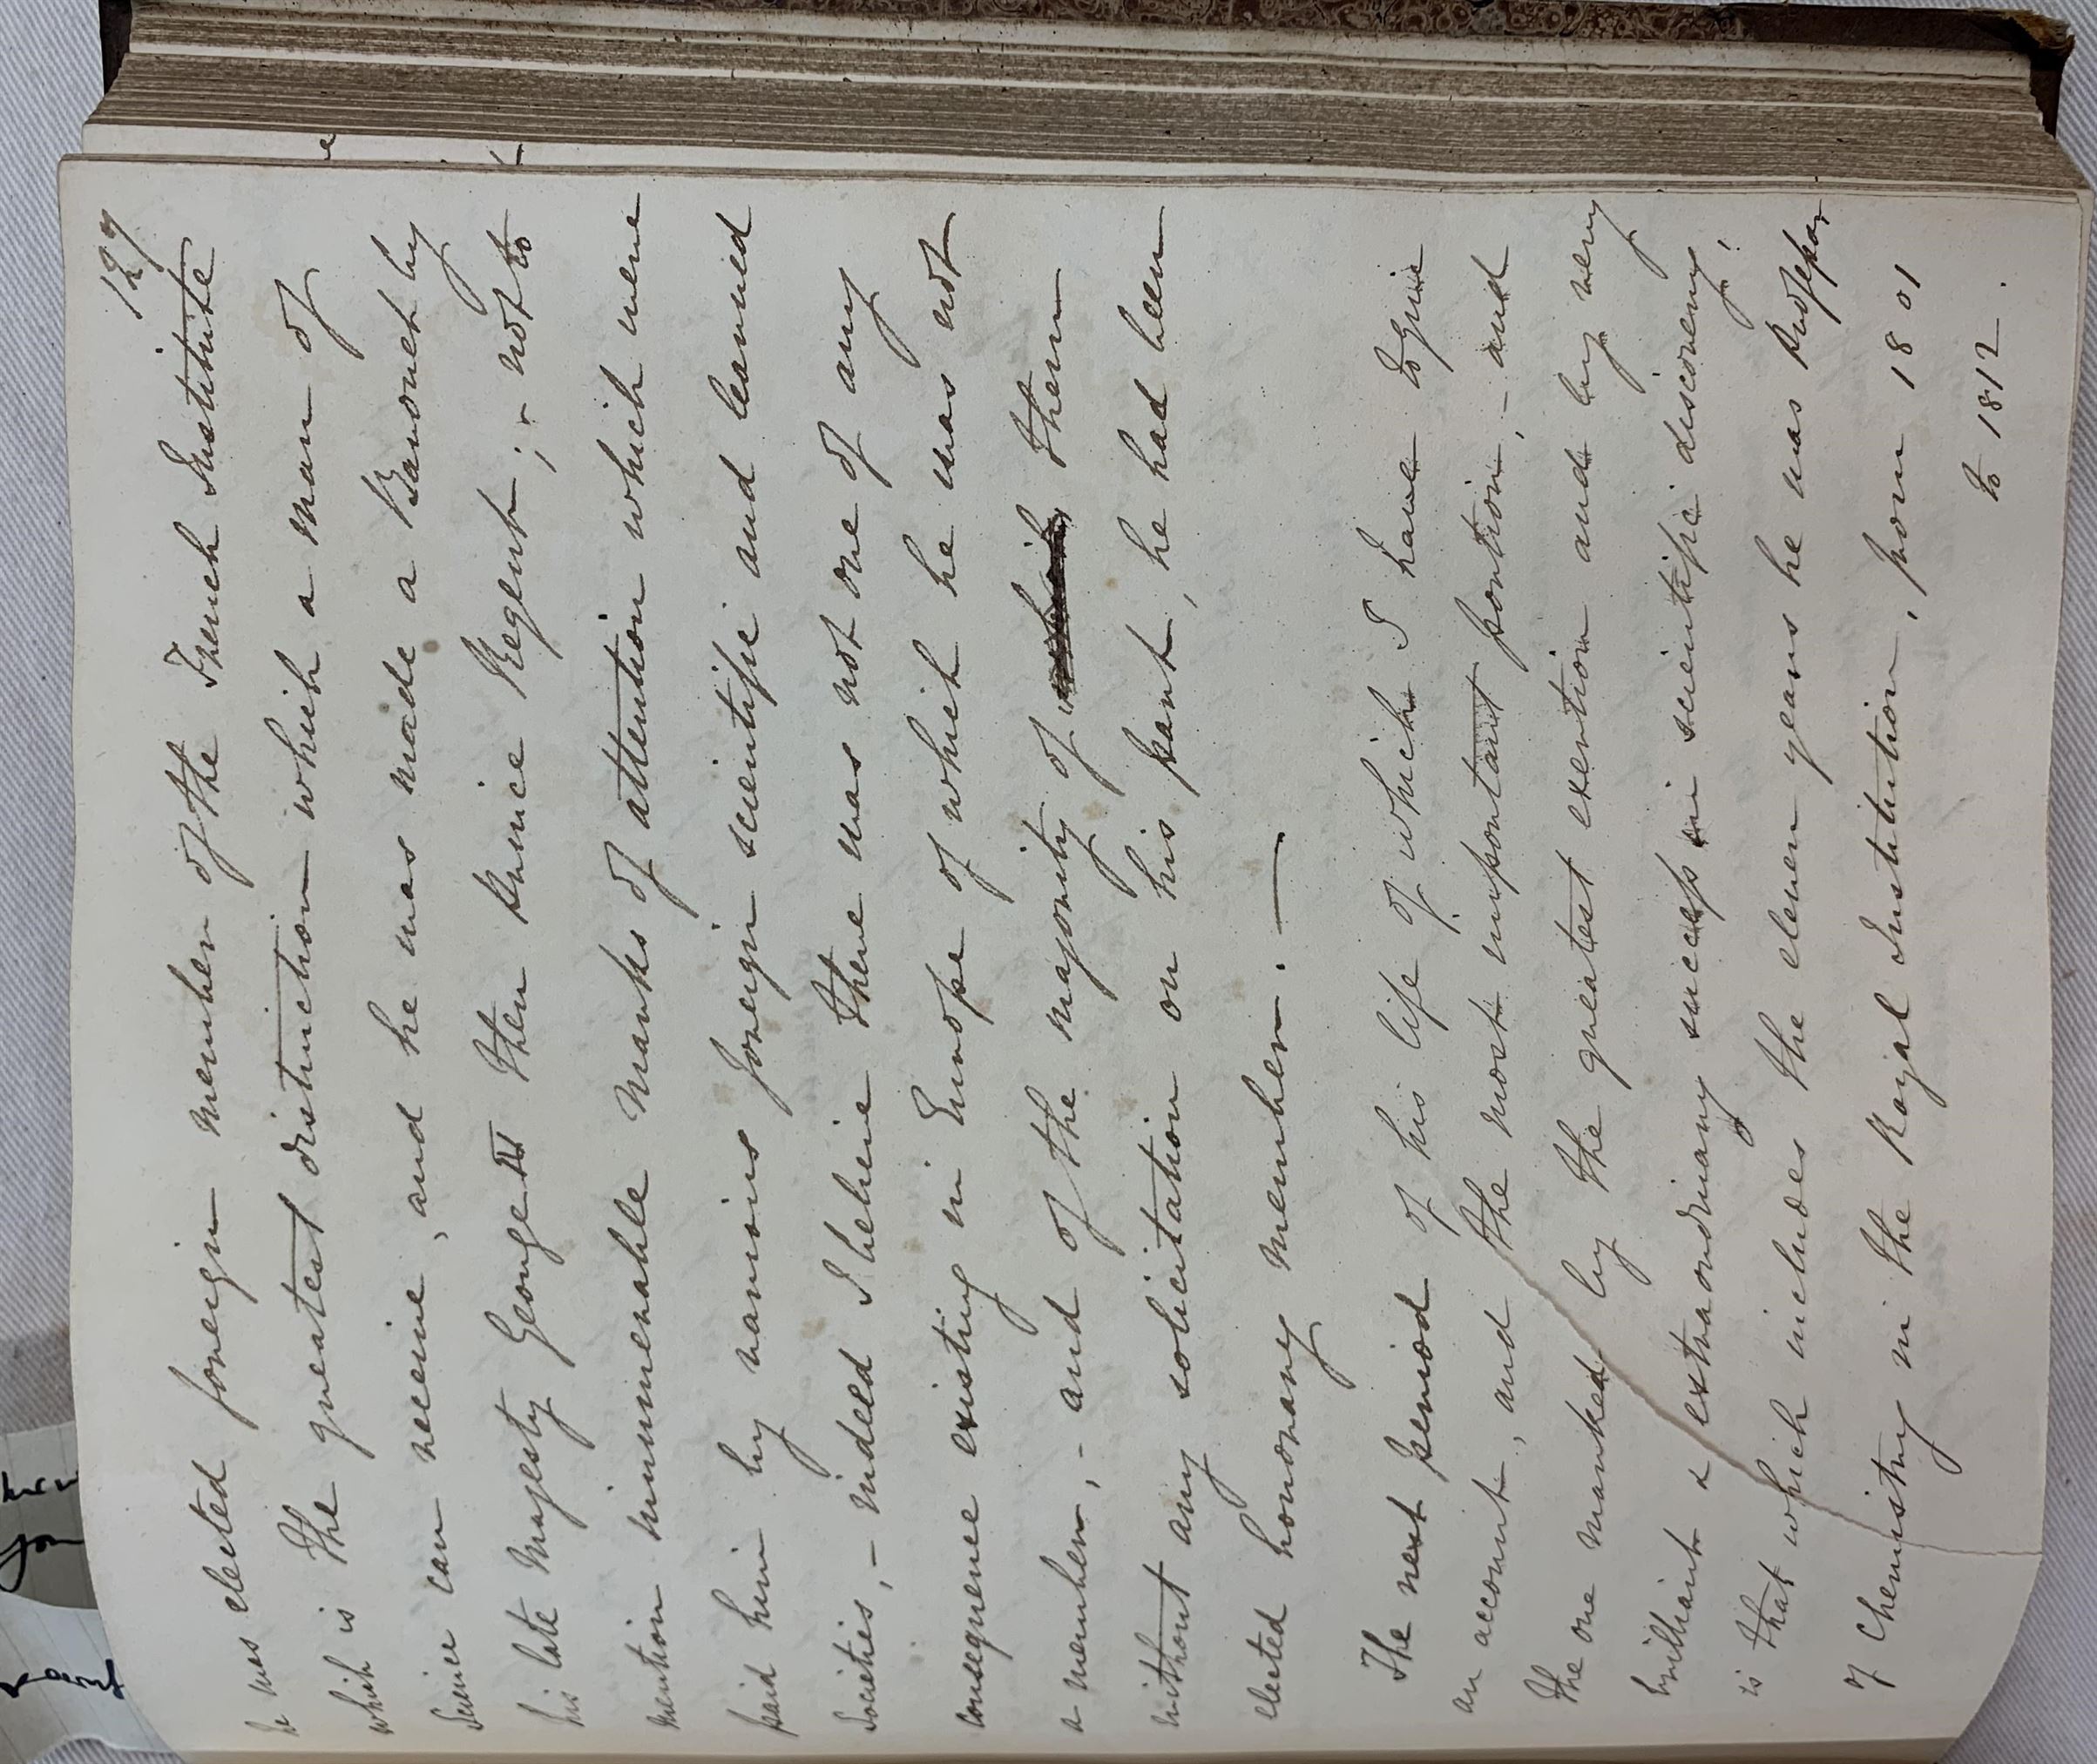 127
he was elected foreign member of the French Institute
which is the greatest distinction which a man of
Science can receive, and he was made a Baronet by
his late Majesty George IV then Prince Regent; & not to
mention innumerable marks of attention which were
paid him by various foreign scientific and learned
Societies, - indeed I believe there was not one of any
consequence existing in Europe of which he was not
a member, - and of the majority of which them
without any solicitation on his part, he had been
elected honorary member. —
The next period of his life of which I have to give
an account, and the most important portion, - and
the one marked by the greatest exertion and by very
brilliant & extraordinary success in scientific discovery,
is that which includes the eleven years he was Professor
of Chemistry in the Royal Institution, from 1801
to 1812.